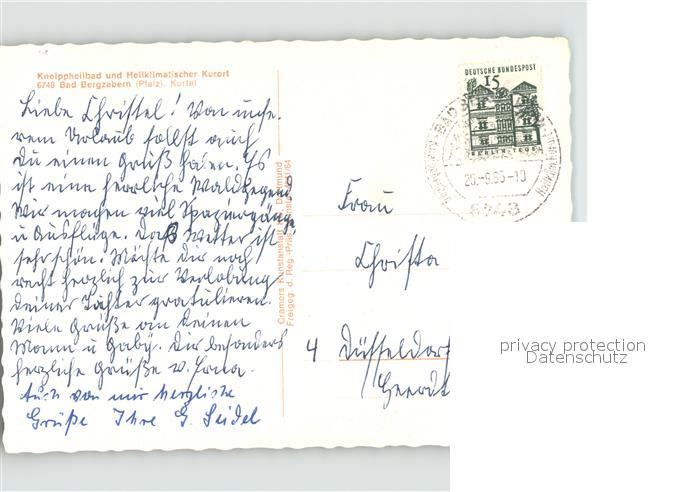 Kneippheilbad und Heilklimatischer Kurort
6748 Bad Bergzabern (Pfalz). Kurtal
Liebe Christel! Von unse-
rem Urlaub sollst auch
Du einen Gruß haben. Es
ist eine herrliche Waldgegend
Wir machen viel Spaziergänge
u Ausflüge. Daß Wetter ist
sehr schön. Möchte Dir noch
recht herzlich zur Verlobung
Deiner Tochter gratulieren.
Viele Grüße an Deinen
Mann u Gaby. Dir besonders
herzliche Grüße v. Erna.
Auch von mir herzliche
Grüße Ihre G. Seidel
Cramers Kunstanstalt Dortmund
Freigeg. d. Reg.-Präs.
DEUTSCHE BUNDESPOST
15
BAD
20.-8.65-10
6748
Frau
Christa
4 Düsseldorf
Gerrdt
privacy protection
Datenschutz